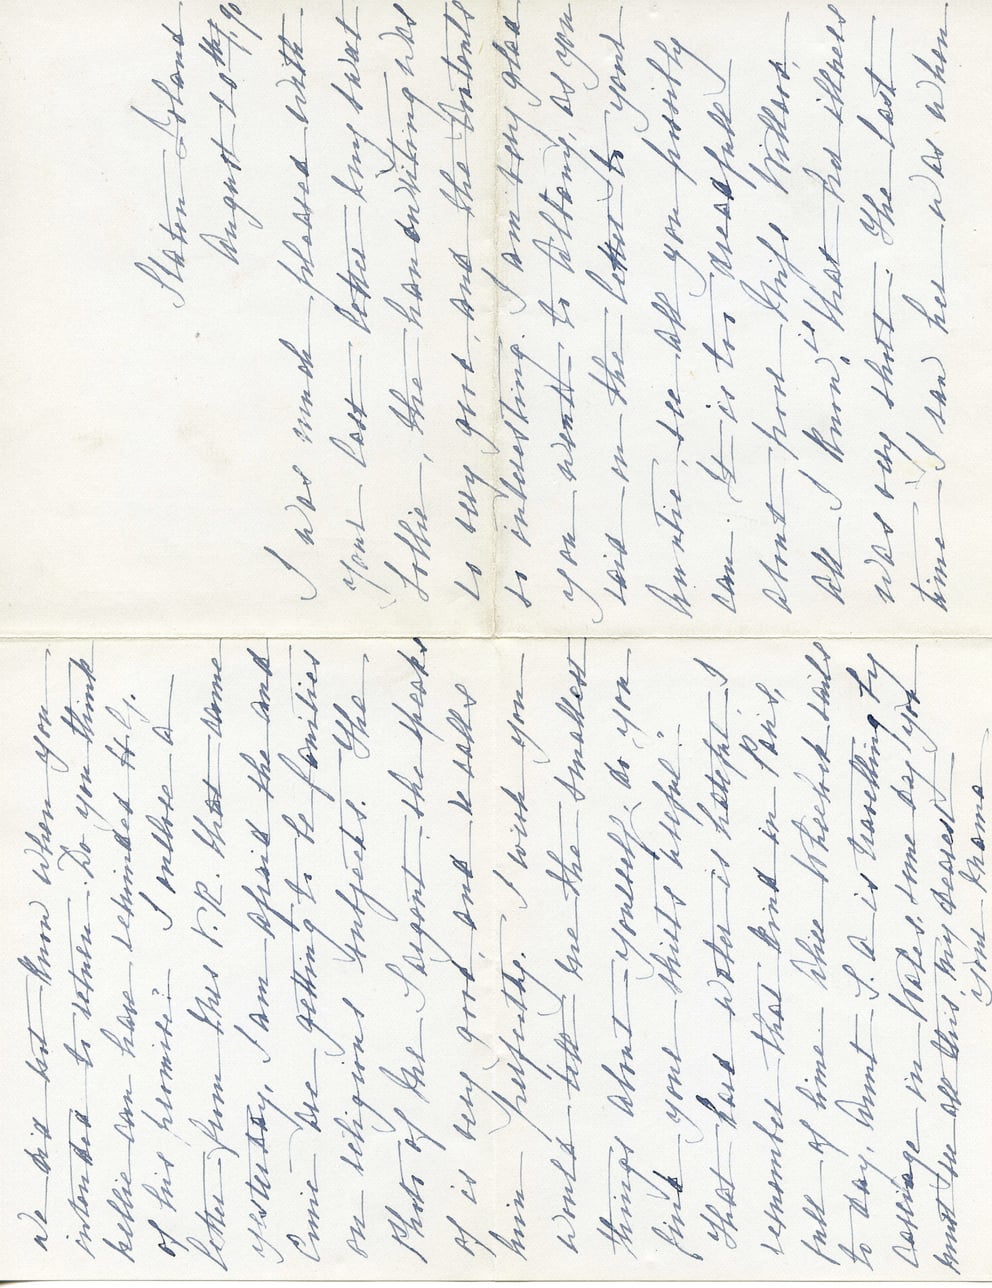 Staten Island
August 10th/90
I was much pleased with
your last letter my sweet
Lollie, the handwriting was
so very good, and the contents
so interesting. I am very glad
you went to Albany, as you
said in the letter to your
Auntie, see all you possibly
can. It is too dreadful
about poor Miss Willard,
all I know, is that her illness
was very short. The last
time I saw her was when
we did not know when you
intended to return. Do you think
Nellie can have reminded H. G.
of his promise? I enclose a
letter from Mrs V. R. that came
yesterday, I am afraid she and
Annie are getting to be families
on religious subjects. The
Photo of the Sargent she speaks
of is very good and recalls
him perfectly. I wish you
would tell me the smallest
things about yourself, do you
find your shirts useful?
That hard water is hateful I
remember that kind in Paris,
full of lime. Alice Whelock sails
to day, Aunt S. A is travelling by
carriage in Wales, some day you
must see all this my dearest
Your Mama